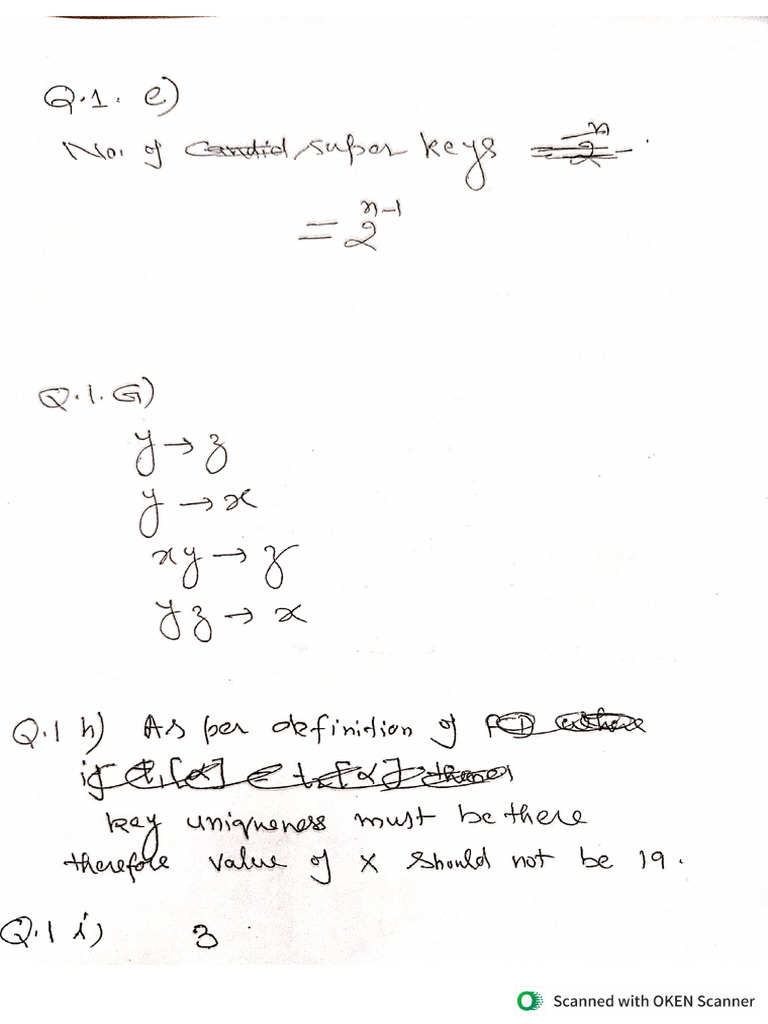 Q.1. e)
No. of Candid super keys = 2^n
= 2^{n-1}
Q.1. G)
y → z
y → x
xy → z
yz → x
Q.1 h) As per definition of
if t1[α] = t2[α] then
key uniqueness must be there
therefore value of x should not be 19.
Q.1 i) 3
Scanned with OKEN Scanner